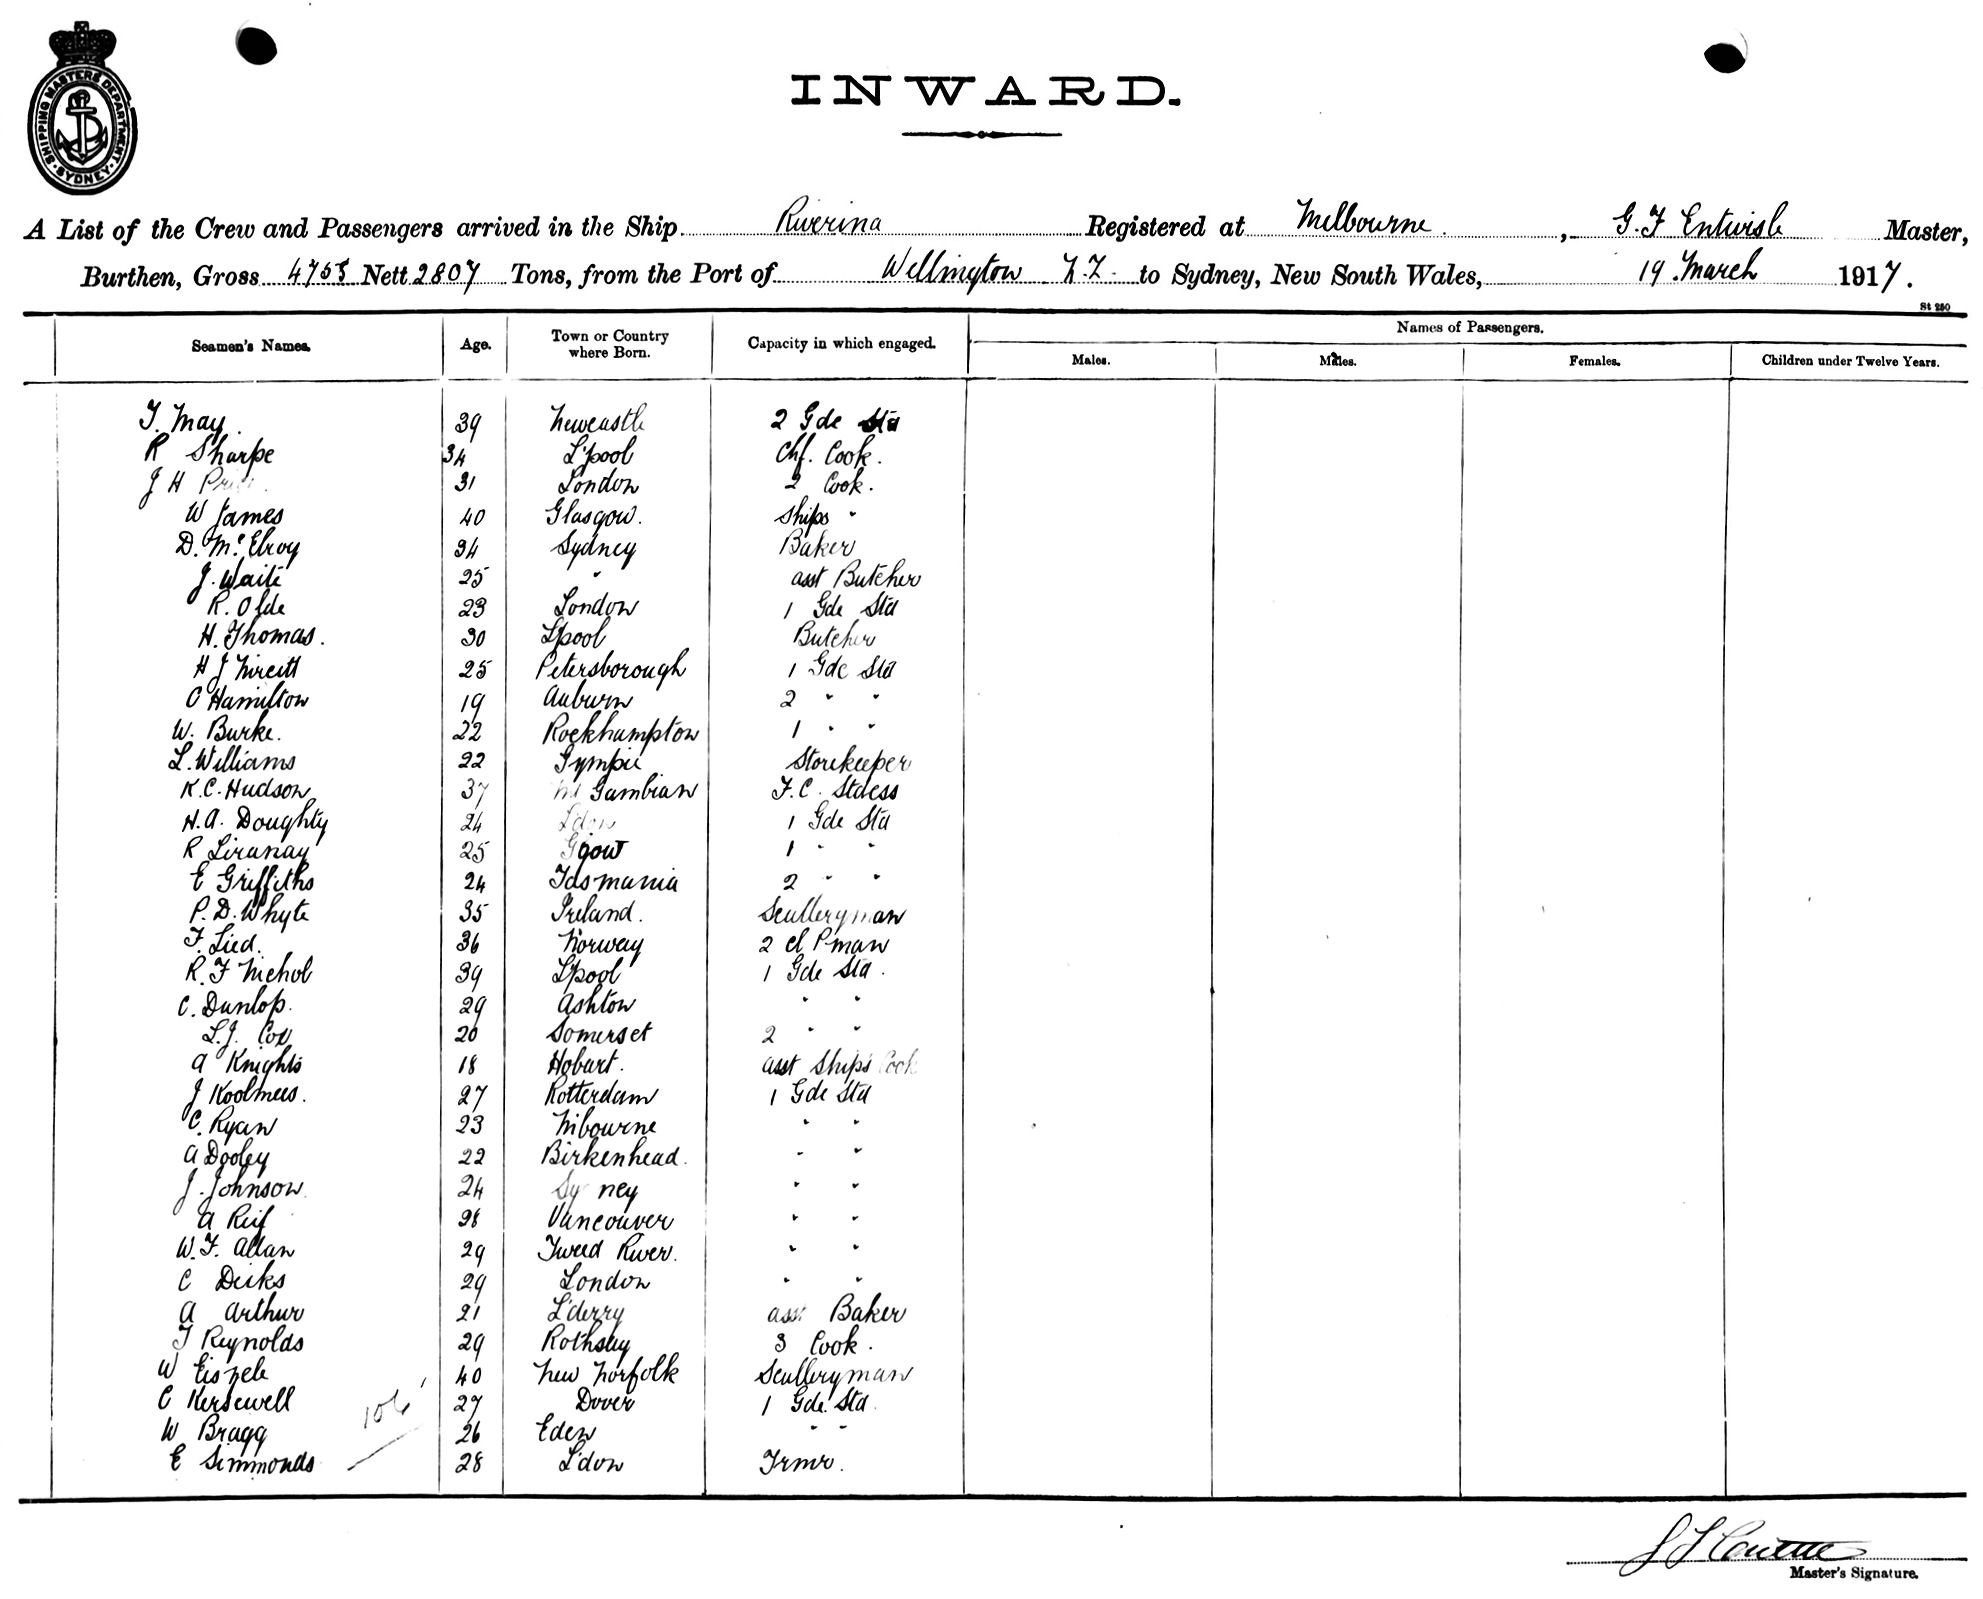 SHIPPING MASTERS DEPARTMENT · SYDNEY ·
INWARD.
A List of the Crew and Passengers arrived in the Ship Riverina Registered at Melbourne, G. F Entwisle Master,
Burthen, Gross 4755 Nett 2807 Tons, from the Port of Wellington N.Z. to Sydney, New South Wales, 19 March 1917.
St 250
Seamen's Names. Age. Town or Country where Born. Capacity in which engaged. Names of Passengers.
Males. Males. Females. Children under Twelve Years.
T. May 39 Newcastle 2 Gde Std
R Sharpe 34 L'pool Chf. Cook.
J H Price 31 London 2 Cook.
W James 40 Glasgow. Ships "
D. McElroy 34 Sydney Baker
J. Waite 25 " asst Butcher
R. Olde 23 London 1 Gde Std
H. Thomas. 30 Lpool Butcher
H J 25 Petersborough 1 Gde Std
C Hamilton 19 Auburn 2 " "
W. Burke. 22 Rockhampton 1 " "
L. Williams 22 Gympie Storekeeper
K. C. Hudson 37 Mt Gambian F. C. Stdess
H. A. Doughty 24 L'don 1 Gde Std
R 25 G'gow 1 " "
E Griffiths 24 Tasmania 2 " "
P. D. Whyte 35 Ireland. Sculleryman
F. Lied. 36 Norway 2 cl Pman
R. F Nichol 39 Lpool 1 Gde Std.
C. Dunlop. 29 Ashton " "
L. J. Cox 20 Somerset 2 " "
A Knights 18 Hobart. asst Ship's Cook
J Koolmees. 27 Rotterdam 1 Gde Std
C. Ryan 23 Mlbourne " "
A Dooley 22 Birkenhead. " "
J. Johnson 24 Sydney " "
A Reif 28 Vancouver " "
W. F. Allan 29 Tweed River. " "
C Dicks 29 London " "
A Arthur 21 L'derry asst Baker
T Reynolds 29 Rothsay 3 Cook.
W Eiszele 40 New Norfolk Sculleryman
C Kersewell 27 Dover 1 Gde. Std.
106
W Bragg 26 Eden " "
E Simmonds 28 L'don Trmr.
Master's Signature.